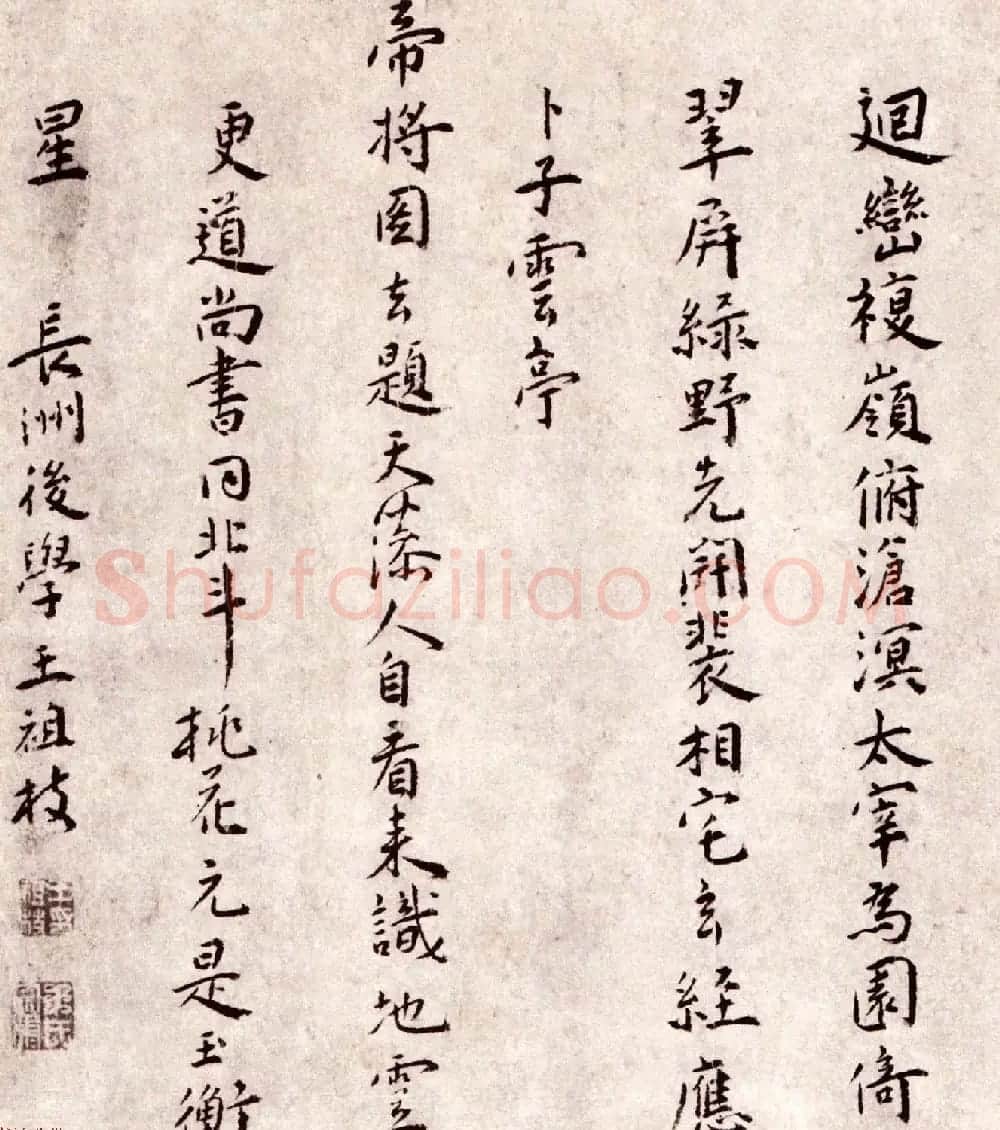 迴巒複嶺俯滄溟太宰為園倚
翠屏綠野先開裴相宅玄經應
卜子雲亭
帝將図去題天漆人自看来識地雲
更道尚書同北斗桃花元是玉衡
星 長洲後學王祖枝
Shufaziliao.COM